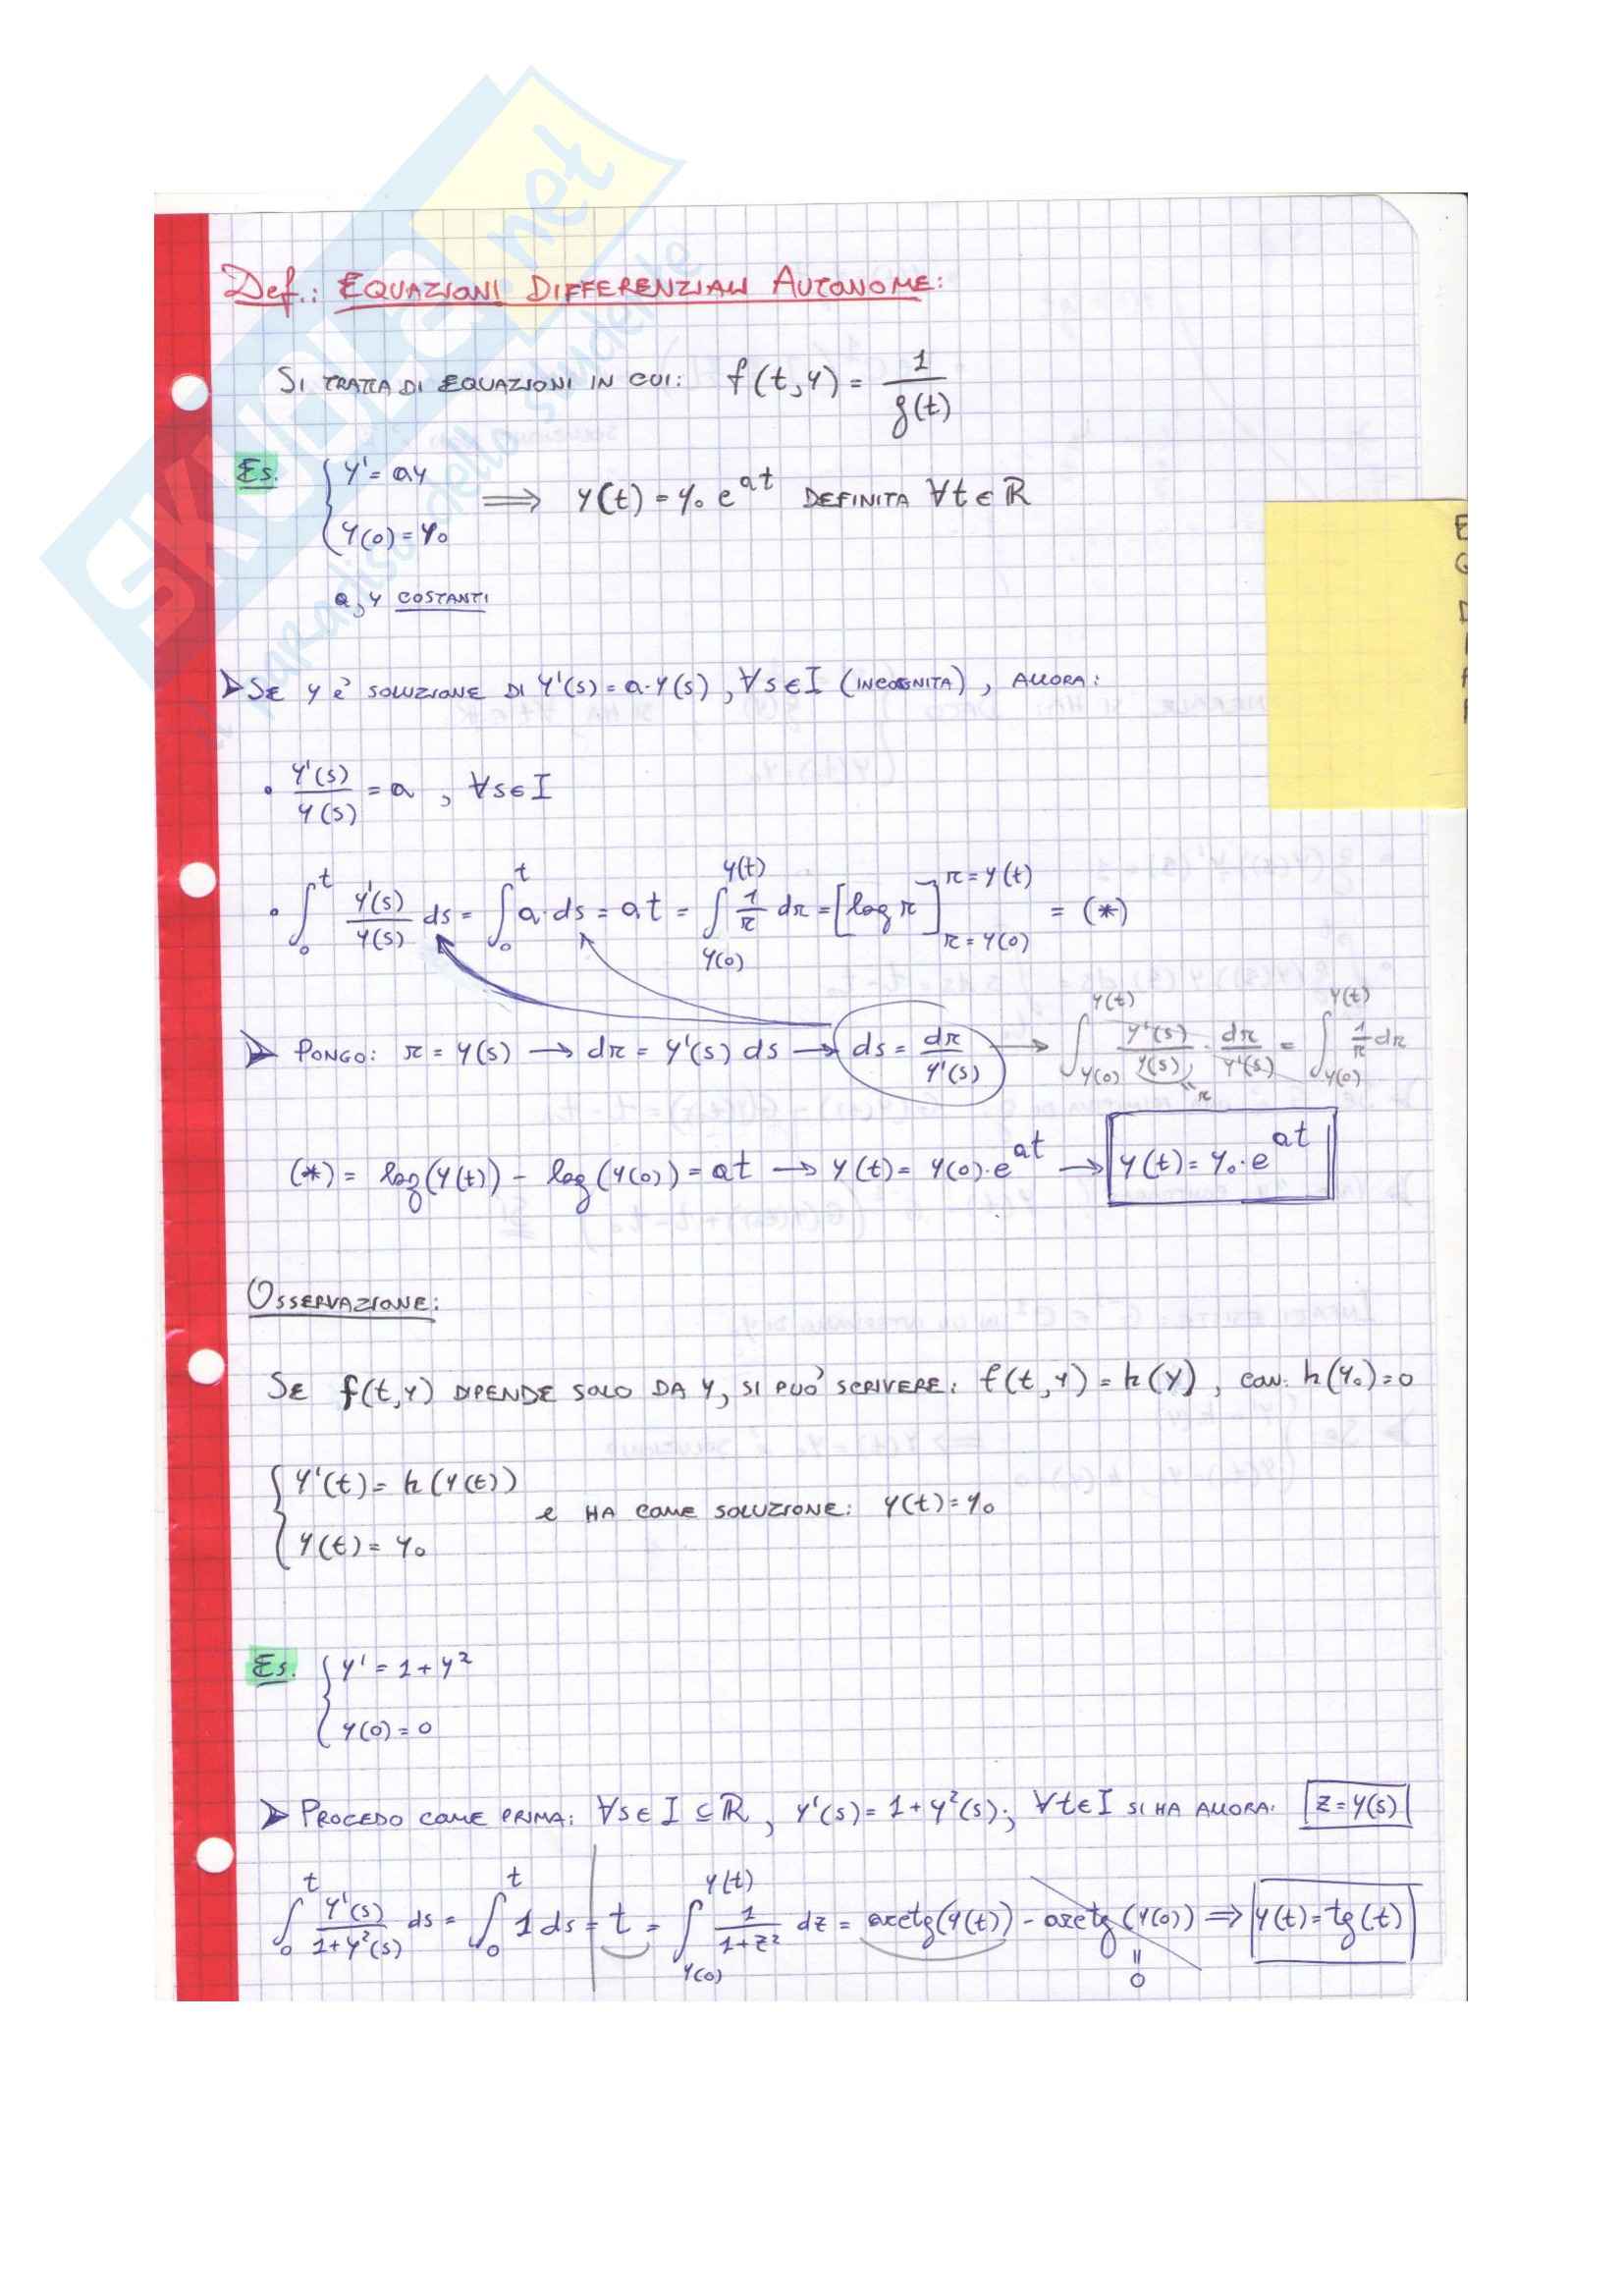 Def.: EQUAZIONI DIFFERENZIALI AUTONOME:
SI TRATTA DI EQUAZIONI IN CUI: f(t,y) = 1/g(t)
Es. { y' = ay
y(0) = y₀ ⟹ y(t) = y₀ e^{at} DEFINITA ∀t∈ℝ
a, y COSTANTI
➤ SE y è SOLUZIONE DI y'(s) = a·y(s), ∀s∈I (INCOGNITA), ALLORA:
• y'(s)/y(s) = a , ∀s∈I
• ∫₀^t y'(s)/y(s) ds = ∫₀^t a·ds = at = ∫_{y(0)}^{y(t)} 1/r dr = [log r]_{r=y(0)}^{r=y(t)} = (*)
➤ PONGO: r = y(s) → dr = y'(s) ds → ds = dr/y'(s) → ∫_{y(0)}^{y(t)} y'(s)/y(s) · dr/y'(s) = ∫_{y(0)}^{y(t)} 1/r dr
"r
(*) = log(y(t)) - log(y(0)) = at → y(t) = y(0)·e^{at} → y(t) = y₀·e^{at}
OSSERVAZIONE:
SE f(t,y) DIPENDE SOLO DA y, SI PUO' SCRIVERE: f(t,y) = h(y), CON: h(y₀)=0
{ y'(t) = h(y(t))
y(t) = y₀ e HA COME SOLUZIONE: y(t) = y₀
Es. { y' = 1 + y²
y(0) = 0
➤ PROCEDO COME PRIMA: ∀s∈I⊆ℝ, y'(s) = 1 + y²(s); ∀t∈I SI HA ALLORA: z = y(s)
∫₀^t y'(s)/(1+y²(s)) ds = ∫₀^t 1 ds = t = ∫_{y(0)}^{y(t)} 1/(1+z²) dz = arctg(y(t)) - arctg(y(0)) ⟹ y(t) = tg(t)
"
0
E
Q
D
I
SKUOLA.net
paradiso dello studente